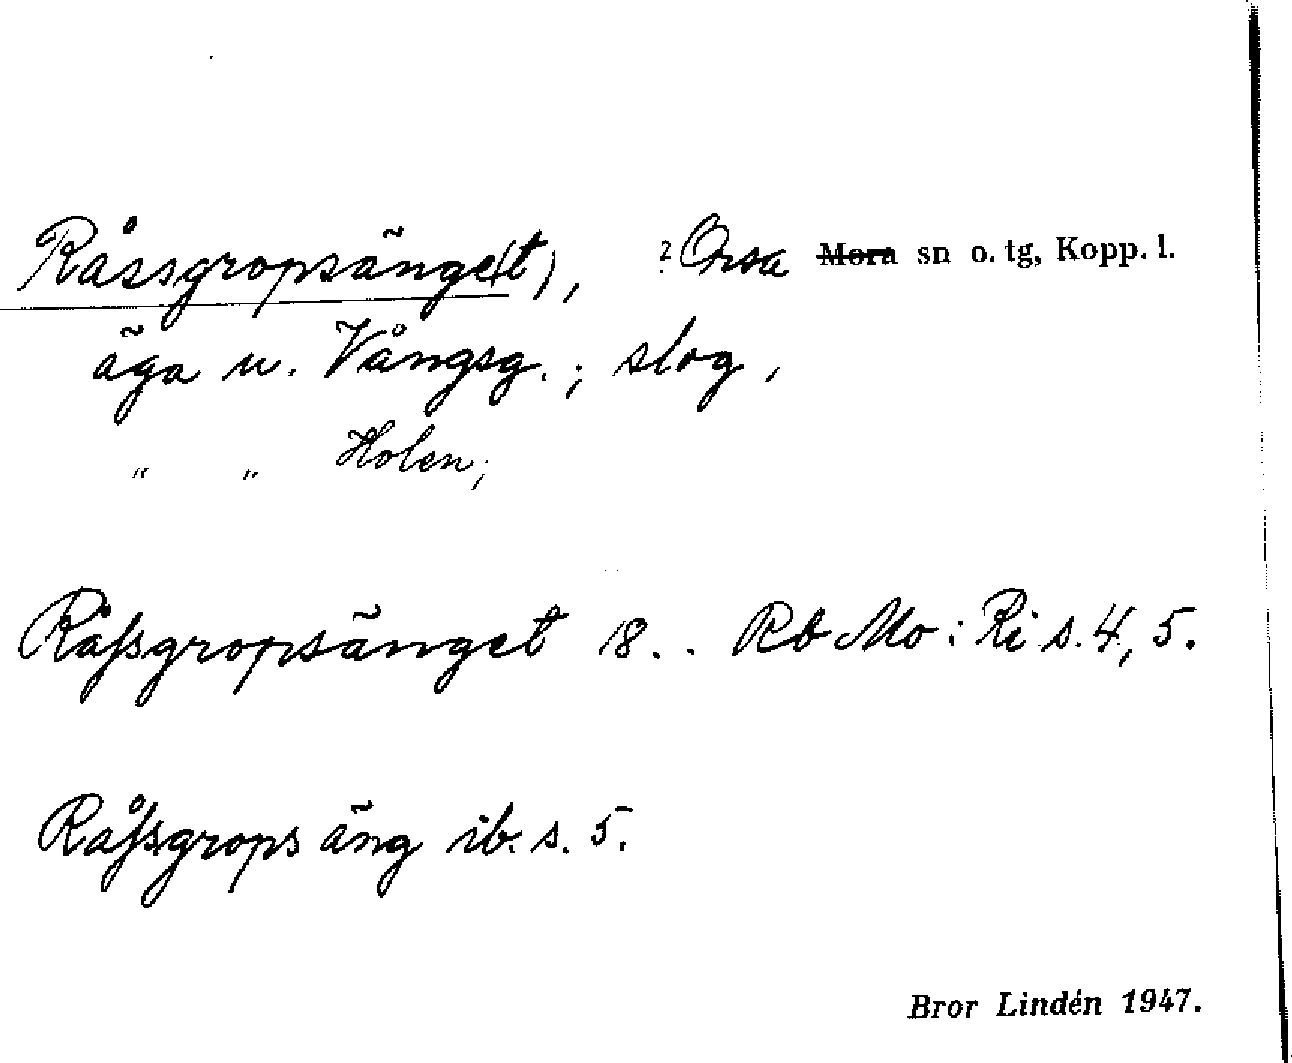 Råssgropsänge(t), ? Orsa Mora sn o. tg, Kopp. l.
äga u. Vångsg.; slog,
" " Holen;
Råssgropsänget 18.. Rb Mo: Ri s. 4, 5.
Råssgrops äng ib. s. 5.
Bror Lindén 1947.